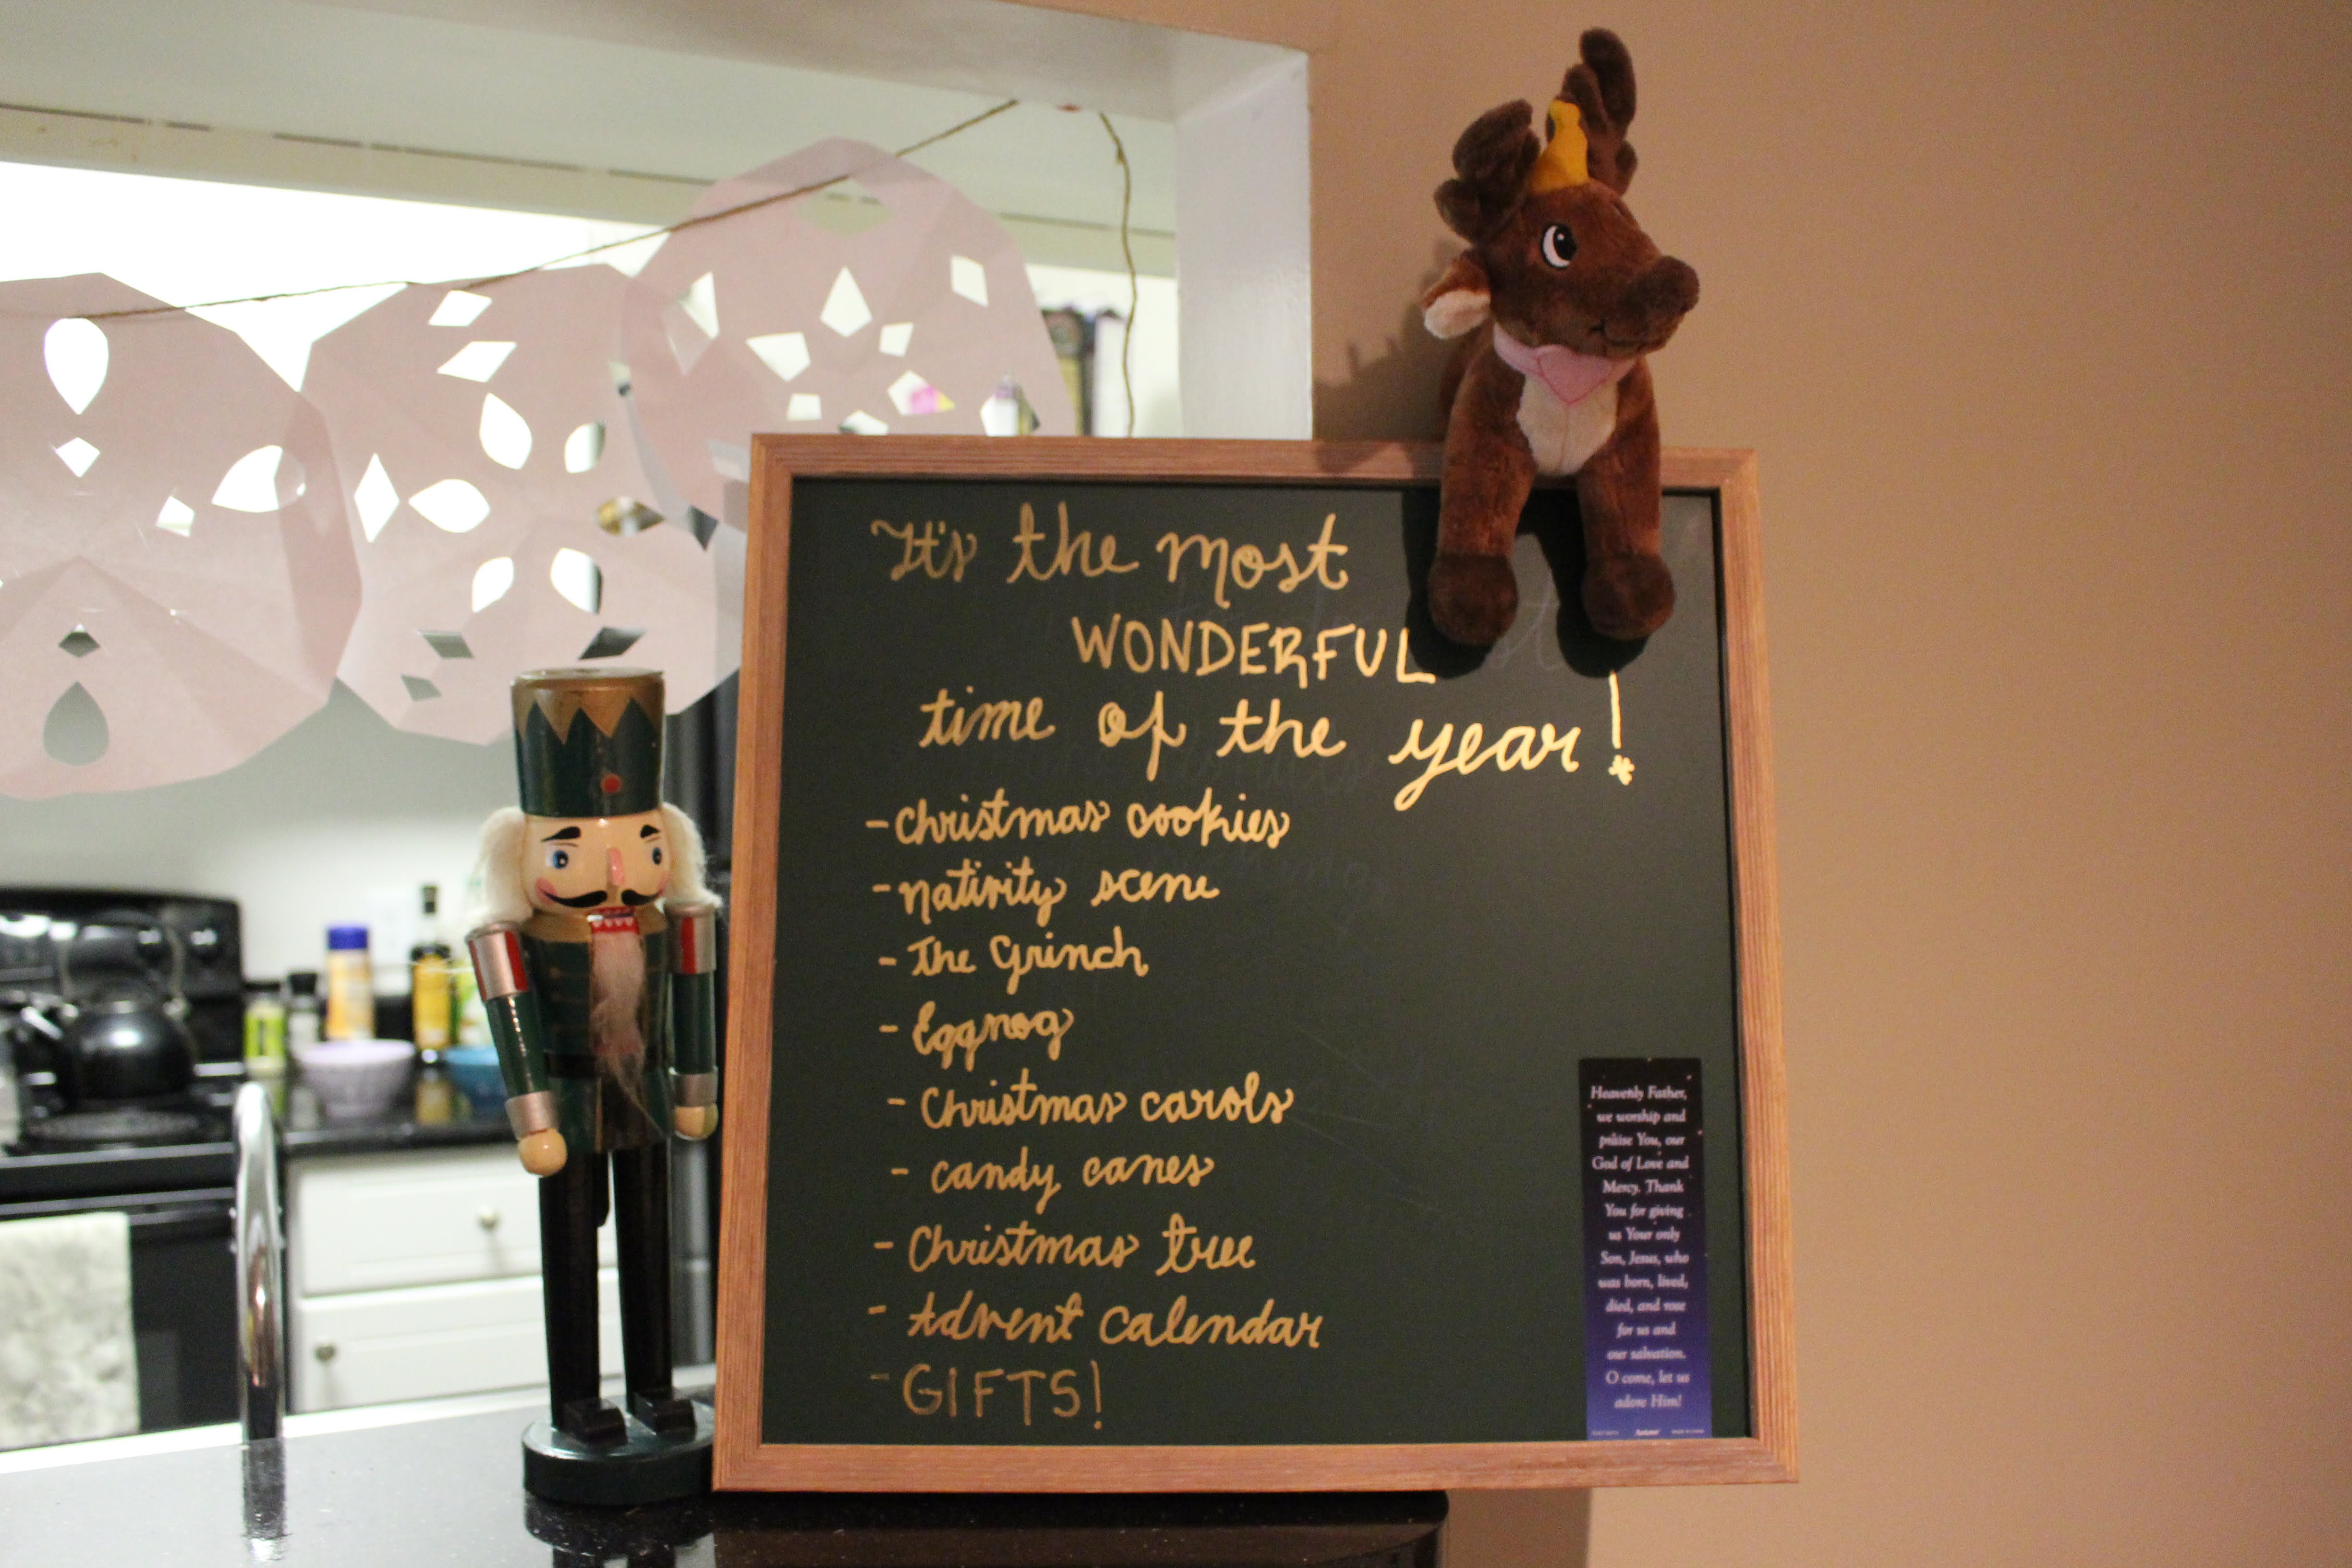 It's the most
WONDERFUL
time of the year!
- Christmas cookies
- nativity scene
- The Grinch
- Eggnog
- Christmas carols
- candy canes
- Christmas tree
- Advent calendar
- GIFTS!
Heavenly Father,
we worship and
praise You, our
God of Love and
Mercy. Thank
You for giving
us Your only
Son, Jesus, who
was born, lived,
died, and rose
for us and
our salvation.
O come, let us
adore Him!